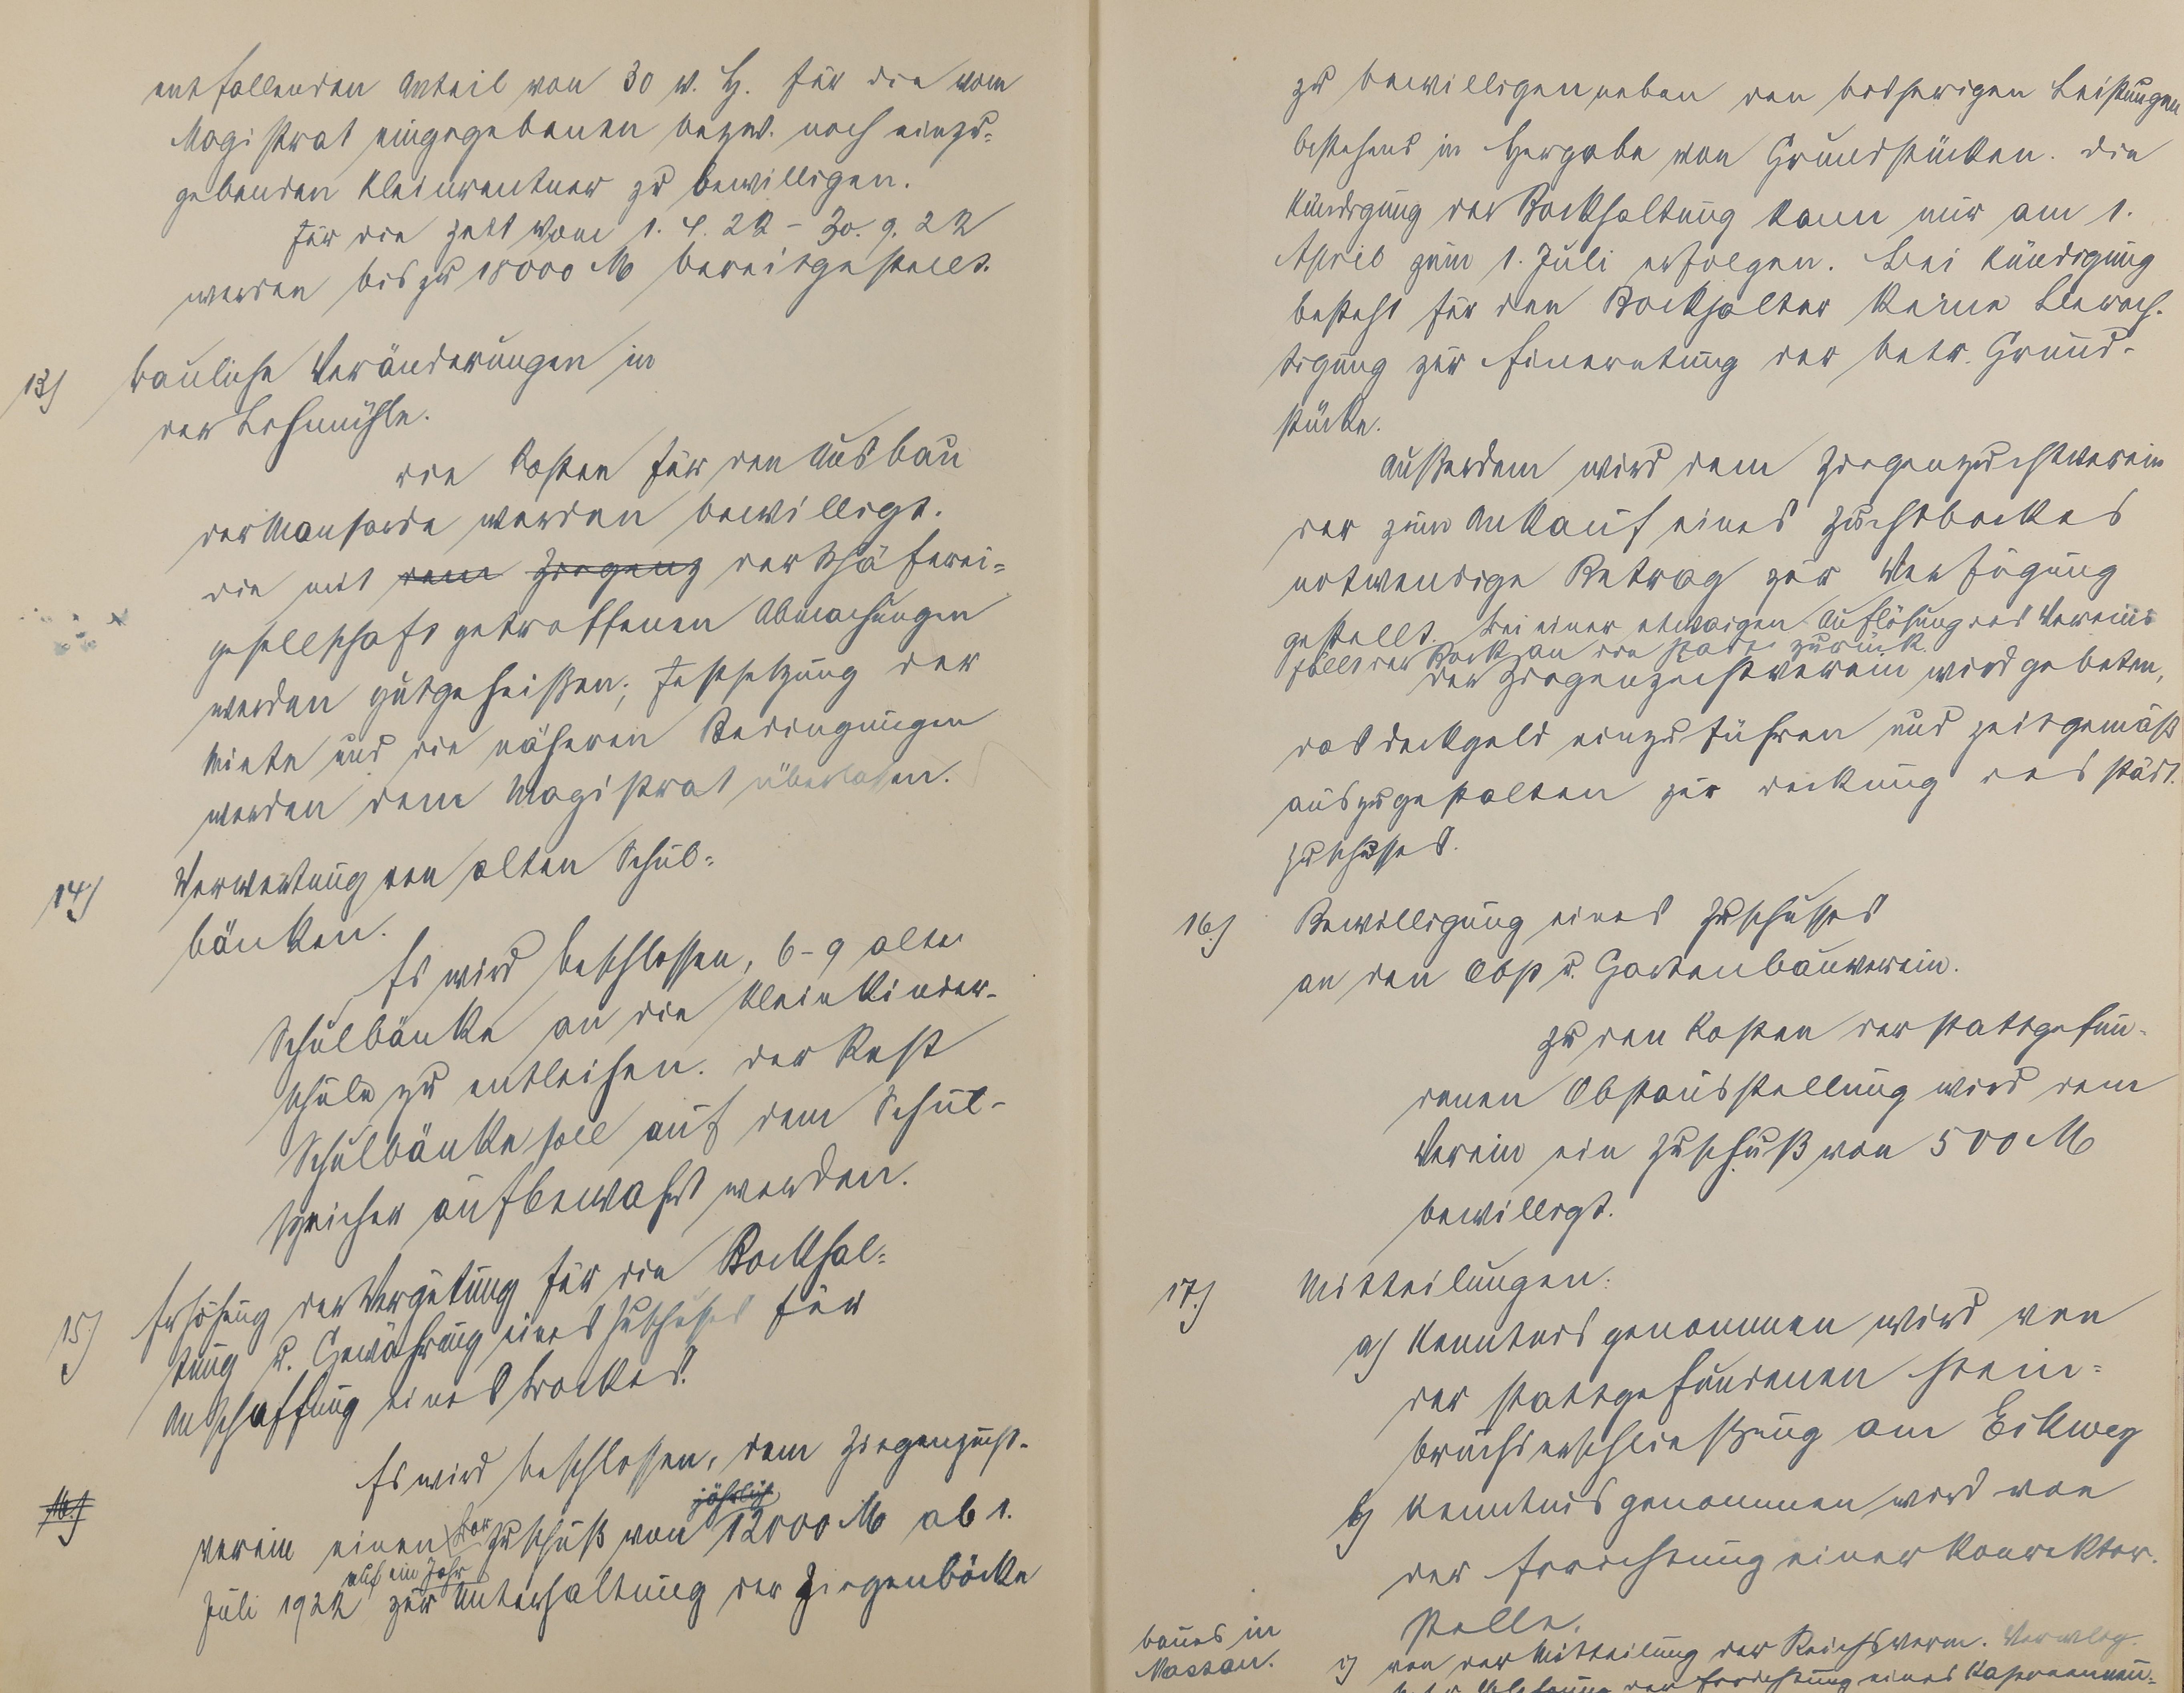 entfallenden Anteil von 30 v. H. für die vom
Magistrat eingegebenen bezw. noch einzu-
gebenden Kleinrentner zu bewilligen.
Für die Zeit vom 1. 4. 22 - 30. 9. 22
werden bis zu 18000 M bereitgestellt.
13) Bauliche Veränderungen in
der Lohmühle.
Die Kosten für den Ausbau
der Mansarde werden bewilligt.
Die mit dem Ziegenz der Schäferei-
gesellschaft getroffenen Abmachungen
werden gutgeheißen; Festsetzung der
Miete und die näheren Bedingungen
werden dem Magistrat überlassen.
14) Verwertung von alten Schul-
bänken.
Es wird beschlossen, 6-9 alte
Schulbänke an die Kleinkinder-
schule zu entleihen. Der Rest
Schulbänke soll auf dem Schul-
speicher aufbewahrt werden.
15) Erhöhung der Vergütung für die Bockhal-
tung u. Gewährung eines Zuschusses für
Anschaffung eines Bockes.
Es wird beschlossen, dem Ziegenzucht-
16.)
jährlich
verein einen Bar Zuschuß von 12000 M ab 1.
auf ein Jahr
Juli 1922 zur Unterhaltung der Ziegenböcke
zu bewilligen neben den bisherigen Leistungen
bestehend in Hergabe von Grundstücken. Die
Kündigung der Bockhaltung kann nur am 1.
April zum 1. Juli erfolgen. Bei Kündigung
besteht für den Bockhalter keine Berech-
tigung zur Einerntung der betr. Grund-
stücke.
Außerdem wird dem Ziegenzuchtverein
der zum Ankauf eines Zuchtbockes
notwendige Betrag zur Verfügung
gestellt. Bei einer etwaigen Auflösung des Vereins
fällt der Bock an die Stadt zurück.
Der Ziegenzuchtverein wird gebeten,
das Deckgeld einzuführen und zeitgemäß
auszugestalten zur Deckung des städt.
Zuschusses.
16.) Bewilligung eines Zuschusses
an den Obst u. Gartenbauverein.
Zu den Kosten der stattgefun-
denen Obstausstellung wird dem
Verein ein Zuschuß von 500 M
bewilligt.
17.) Mitteilungen:
a) Kenntnis genommen wird von
der stattgefundenen Stein-
bruchserschließung am Eckweg
b) Kenntnis genommen wird von
der Errichtung einer Konrektor-
stelle.
c) von der Mitteilung der Reichsverm. Verwltg.
der Errichtung eines Kasernenneu-
baues in
Nassau.